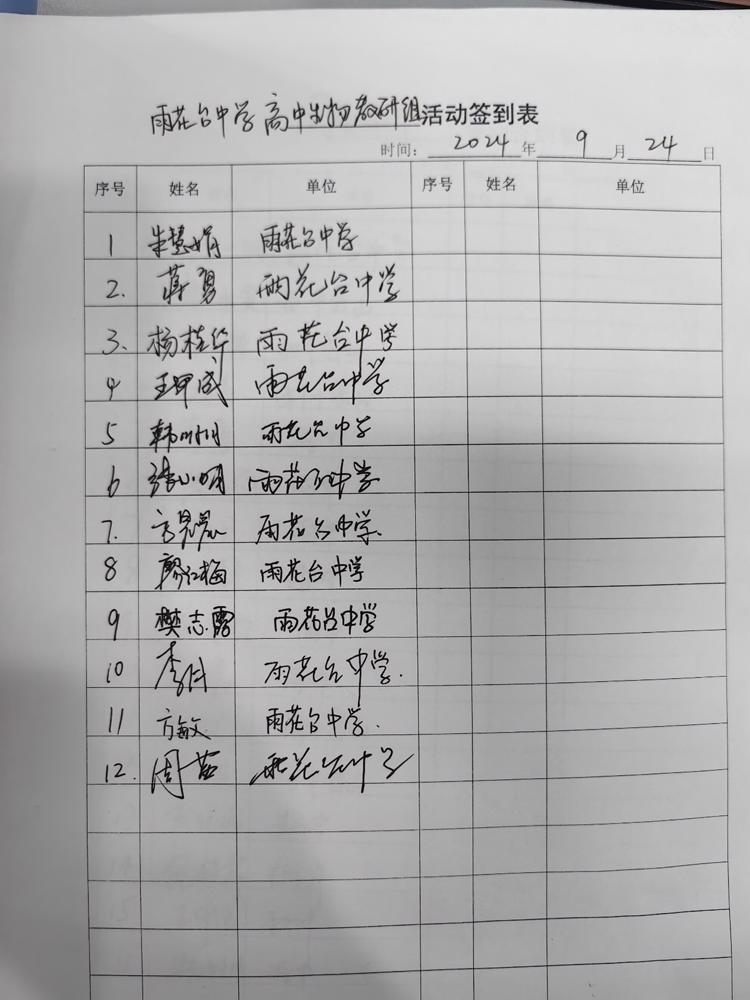 雨花台中学高中生物教研组活动签到表
时间： 2024 年 9 月 24 日
序号 姓名 单位 序号 姓名 单位
1 朱慧娟 雨花台中学
2. 蒋勇 雨花台中学
3. 杨桂华 雨花台中学
4 王甲成 雨花台中学
5 韩 雨花台中学
6 张小明 雨花台中学
7. 雨花台中学.
8 廖红梅 雨花台中学
9 樊志霞 雨花台中学
10 李月 雨花台中学.
11 方敏 雨花台中学.
12. 周苗 雨花台中学